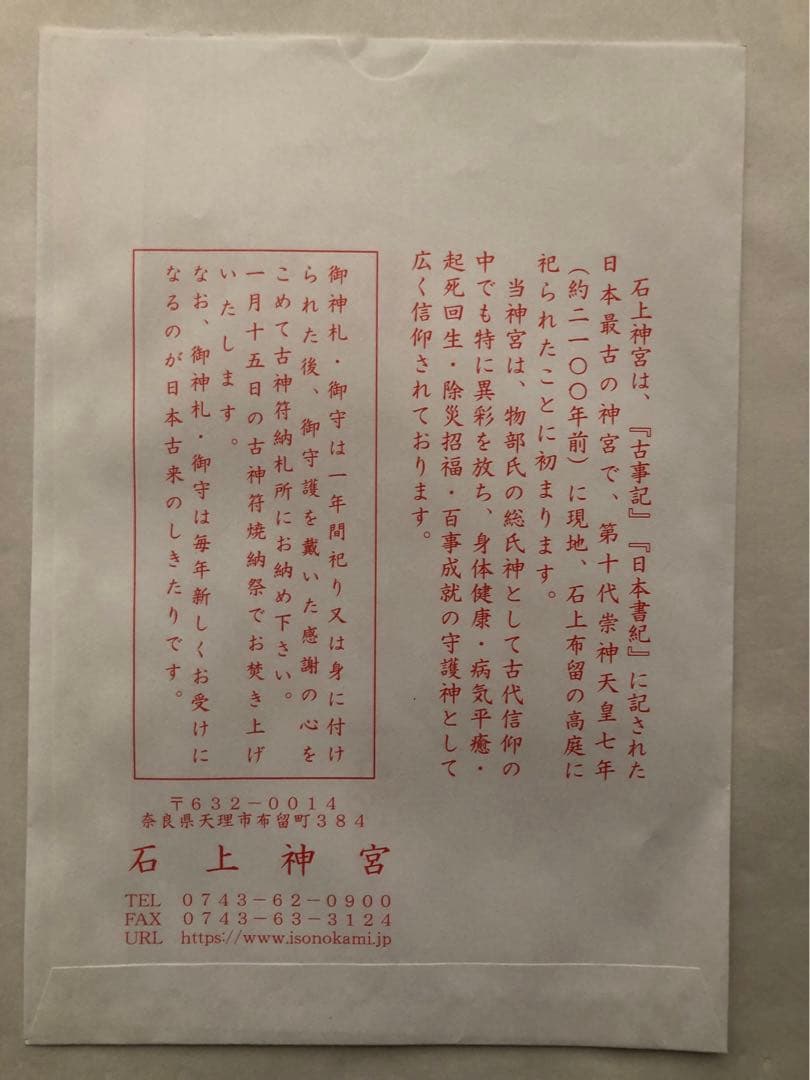 石上神宮は、『古事記』『日本書紀』に記された
日本最古の神宮で、第十代崇神天皇七年
（約二一〇〇年前）に現地、石上布留の高庭に
祀られたことに初まります。
当神宮は、物部氏の総氏神として古代信仰の
中でも特に異彩を放ち、身体健康・病気平癒・
起死回生・除災招福・百事成就の守護神として
広く信仰されております。
御神札・御守は一年間祀り又は身に付け
られた後、御守護を戴いた感謝の心を
こめて古神符納札所にお納め下さい。
一月十五日の古神符焼納祭でお焚き上げ
いたします。
なお、御神札・御守は毎年新しくお受けに
なるのが日本古来のしきたりです。
〒632－0014
奈良県天理市布留町384
石上神宮
TEL 0743－62－0900
FAX 0743－63－3124
URL https://www.isonokami.jp